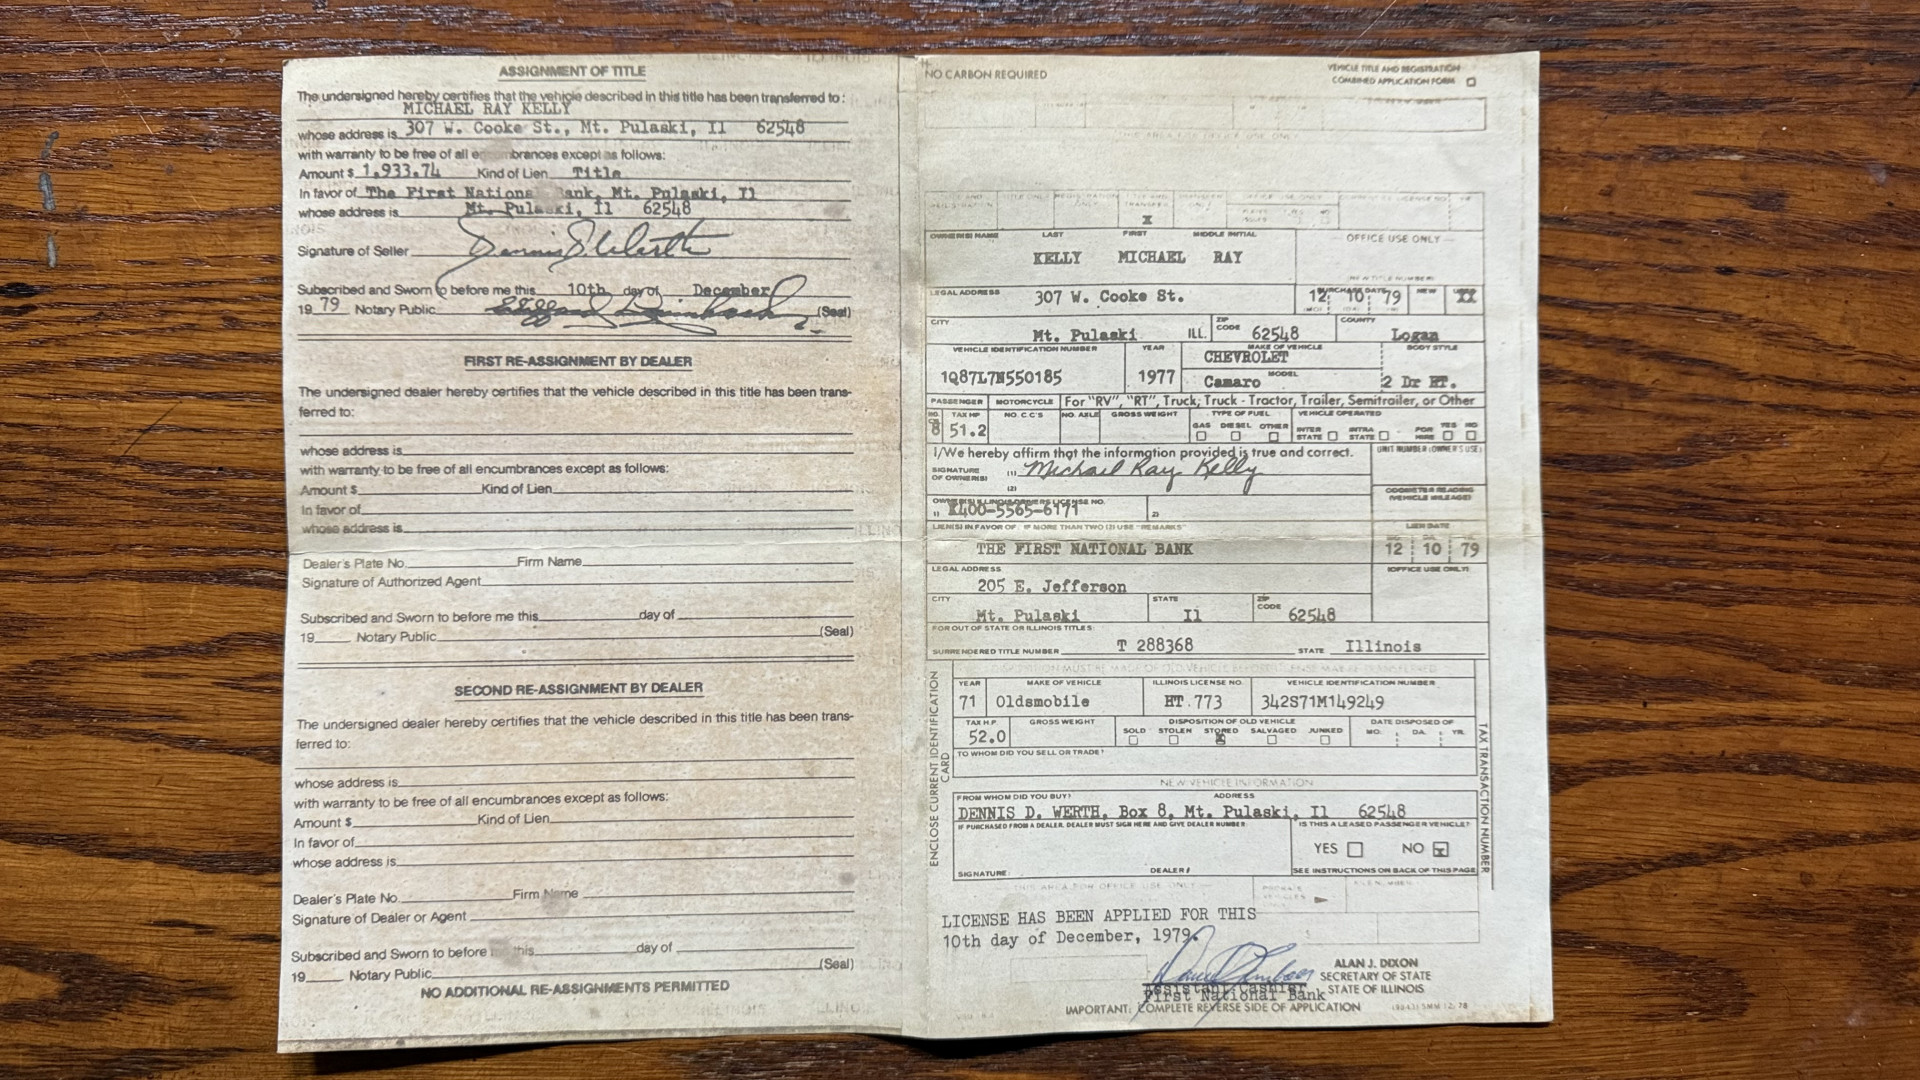 ASSIGNMENT OF TITLE
The undersigned hereby certifies that the vehicle described in this title has been transferred to:
MICHAEL RAY KELLY
whose address is 307 W. Cooke St., Mt. Pulaski, Il 62548
with warranty to be free of all encumbrances except as follows:
Amount $ 1,933.74 Kind of Lien Title
In favor of The First National Bank, Mt. Pulaski, Il
whose address is Mt. Pulaski, Il 62548
Signature of Seller Dennis D Werth
Subscribed and Sworn to before me this 10th day of December
19 79 Notary Public (Seal)
FIRST RE-ASSIGNMENT BY DEALER
The undersigned dealer hereby certifies that the vehicle described in this title has been trans-
ferred to:
whose address is
with warranty to be free of all encumbrances except as follows:
Amount $ Kind of Lien
In favor of
whose address is
Dealer's Plate No. Firm Name
Signature of Authorized Agent
Subscribed and Sworn to before me this day of
19 Notary Public (Seal)
SECOND RE-ASSIGNMENT BY DEALER
The undersigned dealer hereby certifies that the vehicle described in this title has been trans-
ferred to:
whose address is
with warranty to be free of all encumbrances except as follows:
Amount $ Kind of Lien
In favor of
whose address is
Dealer's Plate No. Firm Name
Signature of Dealer or Agent
Subscribed and Sworn to before me this day of
19 Notary Public (Seal)
NO ADDITIONAL RE-ASSIGNMENTS PERMITTED
NO CARBON REQUIRED
VEHICLE TITLE AND REGISTRATION
COMBINED APPLICATION FORM
THIS AREA FOR OFFICE USE ONLY
X
OWNER(S) NAME LAST FIRST MIDDLE INITIAL OFFICE USE ONLY
KELLY MICHAEL RAY
(NEW TITLE NUMBER)
LEGAL ADDRESS 307 W. Cooke St. PURCHASE DATE 12 10 79 NEW USED XX
CITY Mt. Pulaski ILL. ZIP CODE 62548 COUNTY Logan
VEHICLE IDENTIFICATION NUMBER YEAR MAKE OF VEHICLE BODY STYLE
CHEVROLET
1Q87L7N550185 1977 MODEL Camaro 2 Dr HT.
PASSENGER MOTORCYCLE For "RV", "RT", Truck, Truck - Tractor, Trailer, Semitrailer, or Other
NO. CYL TAX HP NO. C.C'S NO. AXLE GROSS WEIGHT TYPE OF FUEL VEHICLE OPERATED
8 51.2 GAS DIESEL OTHER INTER STATE INTRA STATE FOR HIRE YES NO
I/We hereby affirm that the information provided is true and correct. UNIT NUMBER (OWNER'S USE)
SIGNATURE OF OWNER(S) (1) Michael Ray Kelly
(2)
ODOMETER READING (VEHICLE MILEAGE)
OWNER(S) ILLINOIS DRIVERS LICENSE NO.
1) K400-5565-6171 2)
LIEN(S) IN FAVOR OF: IF MORE THAN TWO (2) USE "REMARKS" LIEN DATE
THE FIRST NATIONAL BANK 12 10 79
LEGAL ADDRESS (OFFICE USE ONLY)
205 E. Jefferson
CITY STATE ZIP CODE
Mt. Pulaski Il 62548
FOR OUT OF STATE OR ILLINOIS TITLES:
SURRENDERED TITLE NUMBER T 288368 STATE Illinois
ENCLOSE CURRENT IDENTIFICATION CARD
YEAR MAKE OF VEHICLE ILLINOIS LICENSE NO. VEHICLE IDENTIFICATION NUMBER
71 Oldsmobile HT 773 342S71M149249
TAX H.P. GROSS WEIGHT DISPOSITION OF OLD VEHICLE DATE DISPOSED OF
52.0 SOLD STOLEN STORED SALVAGED JUNKED MO. DA. YR.
TO WHOM DID YOU SELL OR TRADE?
NEW VEHICLE INFORMATION
FROM WHOM DID YOU BUY? ADDRESS
DENNIS D. WERTH, Box 8, Mt. Pulaski, Il 62548
IF PURCHASED FROM A DEALER, DEALER MUST SIGN HERE AND GIVE DEALER NUMBER IS THIS A LEASED PASSENGER VEHICLE?
YES NO
SIGNATURE: DEALER# SEE INSTRUCTIONS ON BACK OF THIS PAGE
TAX TRANSACTION NUMBER
THIS AREA FOR OFFICE USE ONLY
LICENSE HAS BEEN APPLIED FOR THIS
10th day of December, 1979.
Assistant Cashier
First National Bank
ALAN J. DIXON
SECRETARY OF STATE
STATE OF ILLINOIS
IMPORTANT: COMPLETE REVERSE SIDE OF APPLICATION